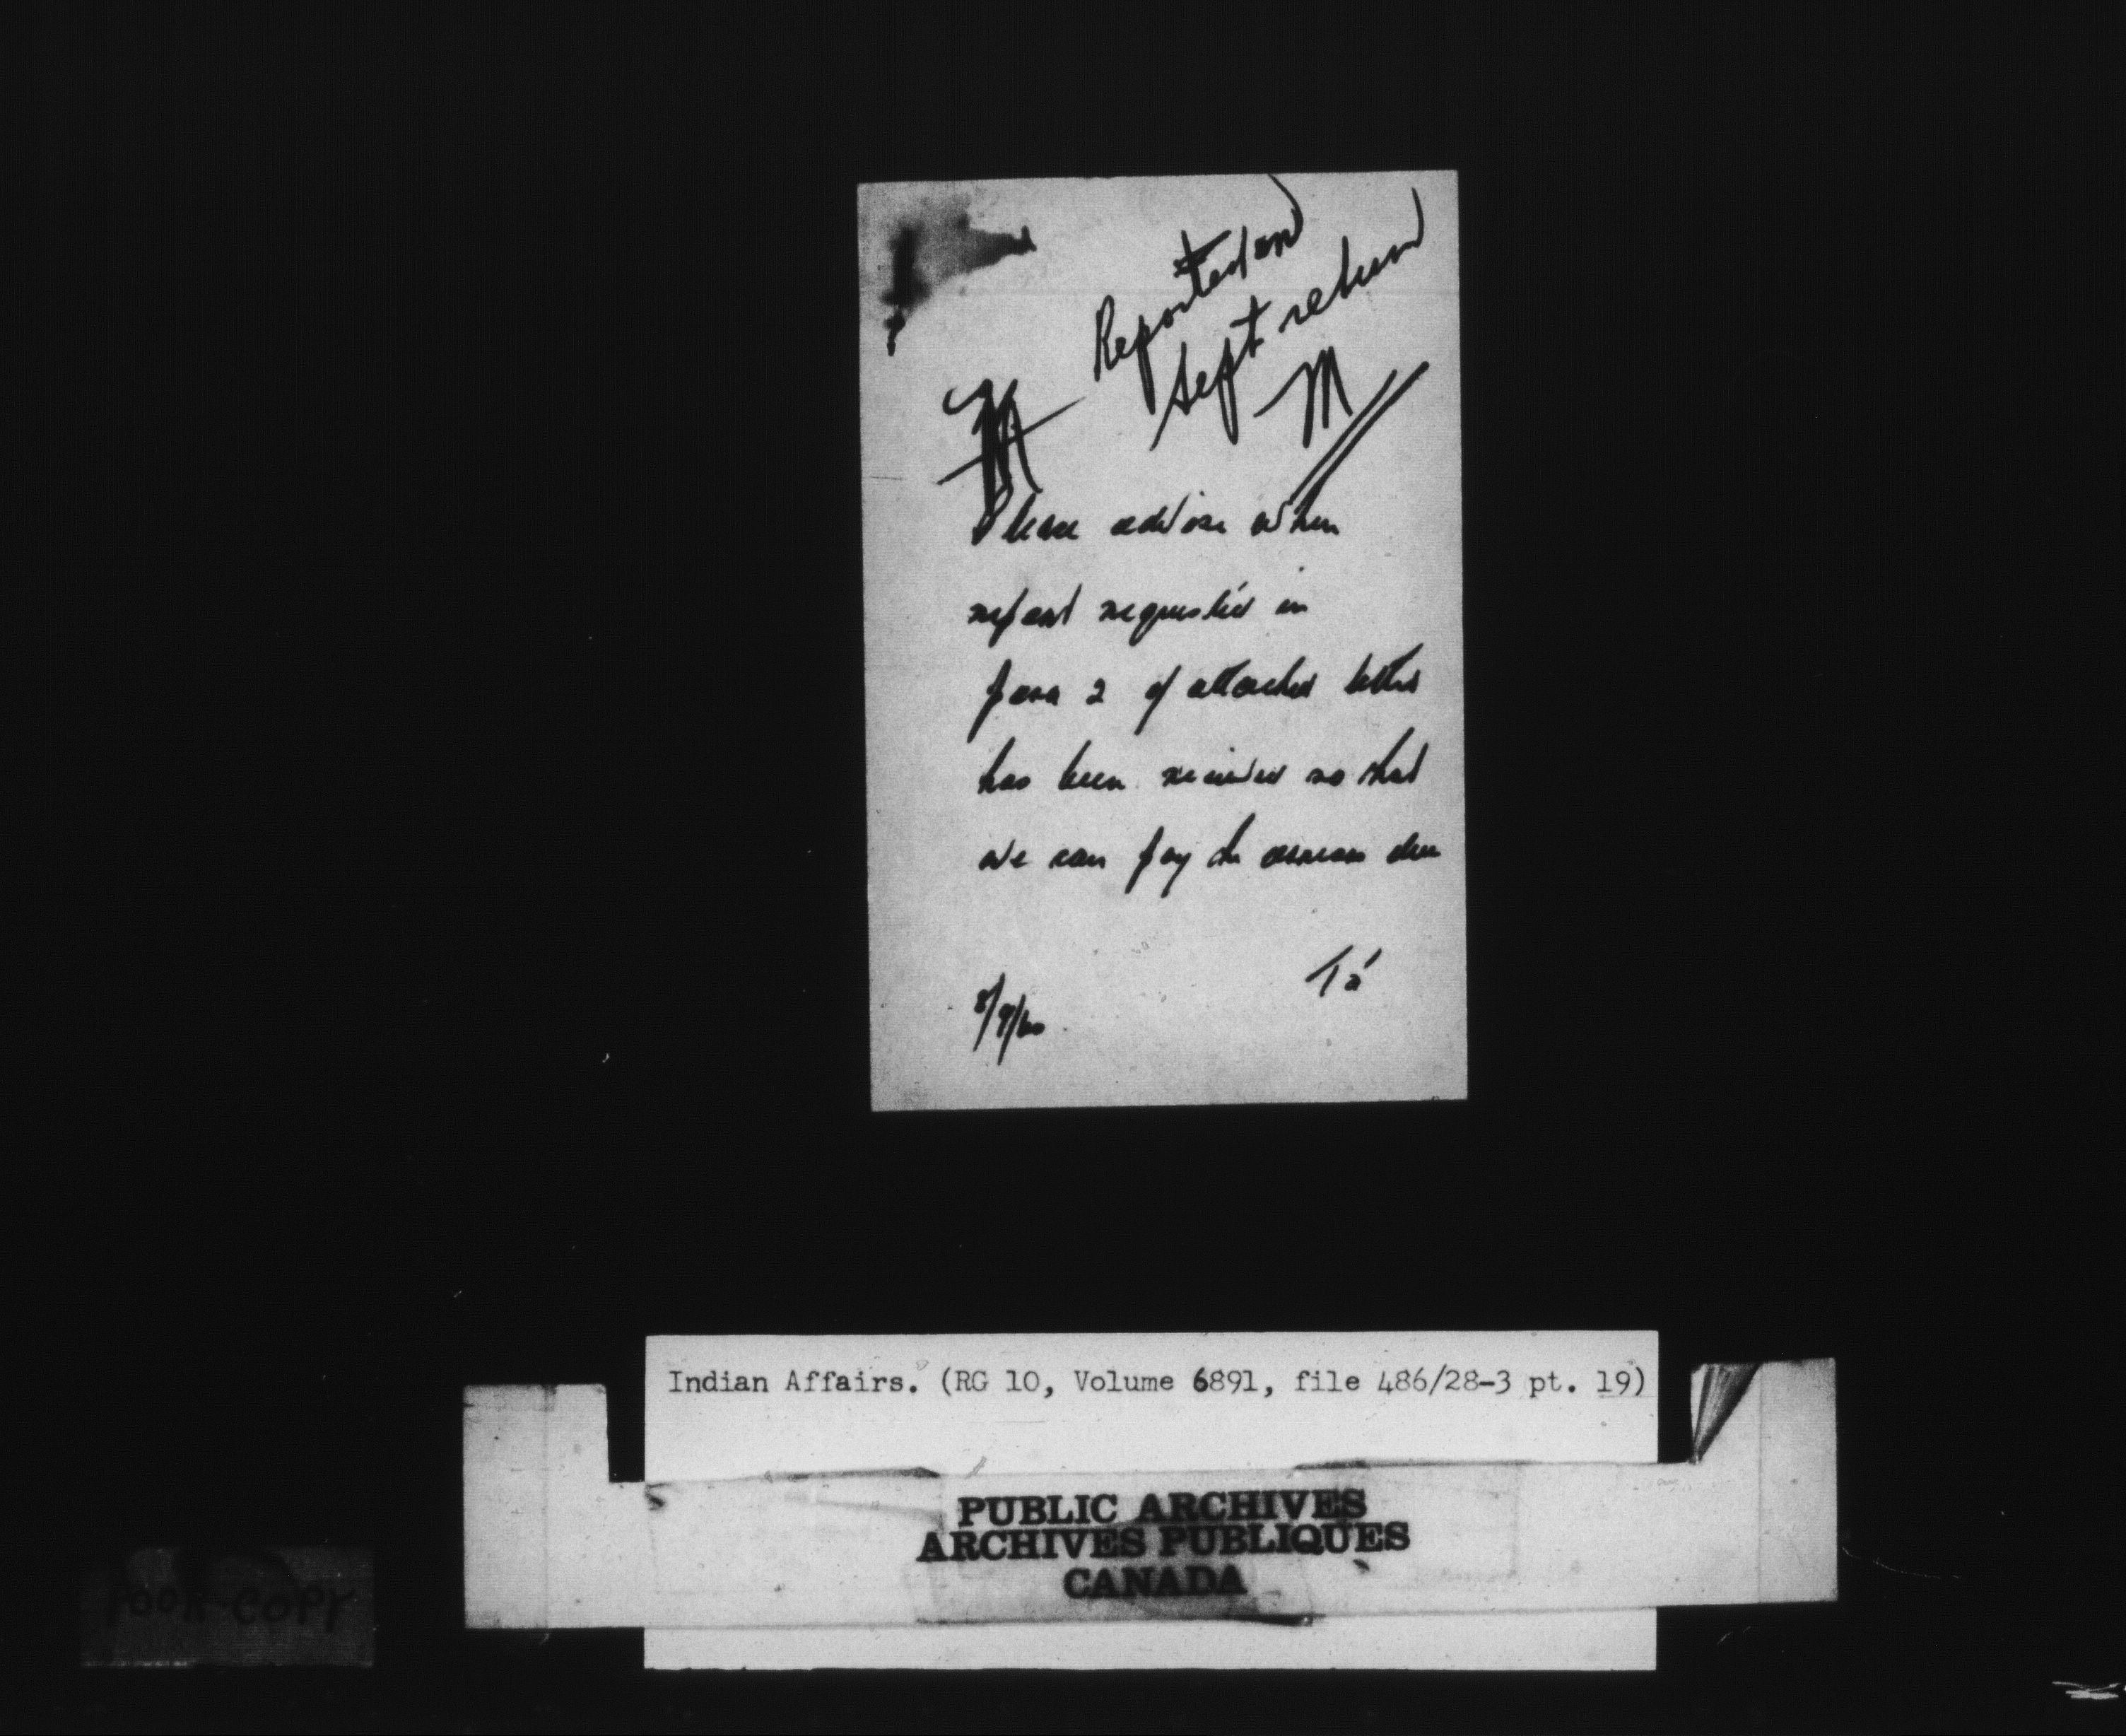 Reported on
Sept return
M
Please advise when
report requested in
para 2 of attached letter
has been received so that
we can pay the arrears due
8/9/60
Indian Affairs. (RG 10, Volume 6891, file 486/28-3 pt. 19)
PUBLIC ARCHIVES
ARCHIVES PUBLIQUES
CANADA
POOR COPY